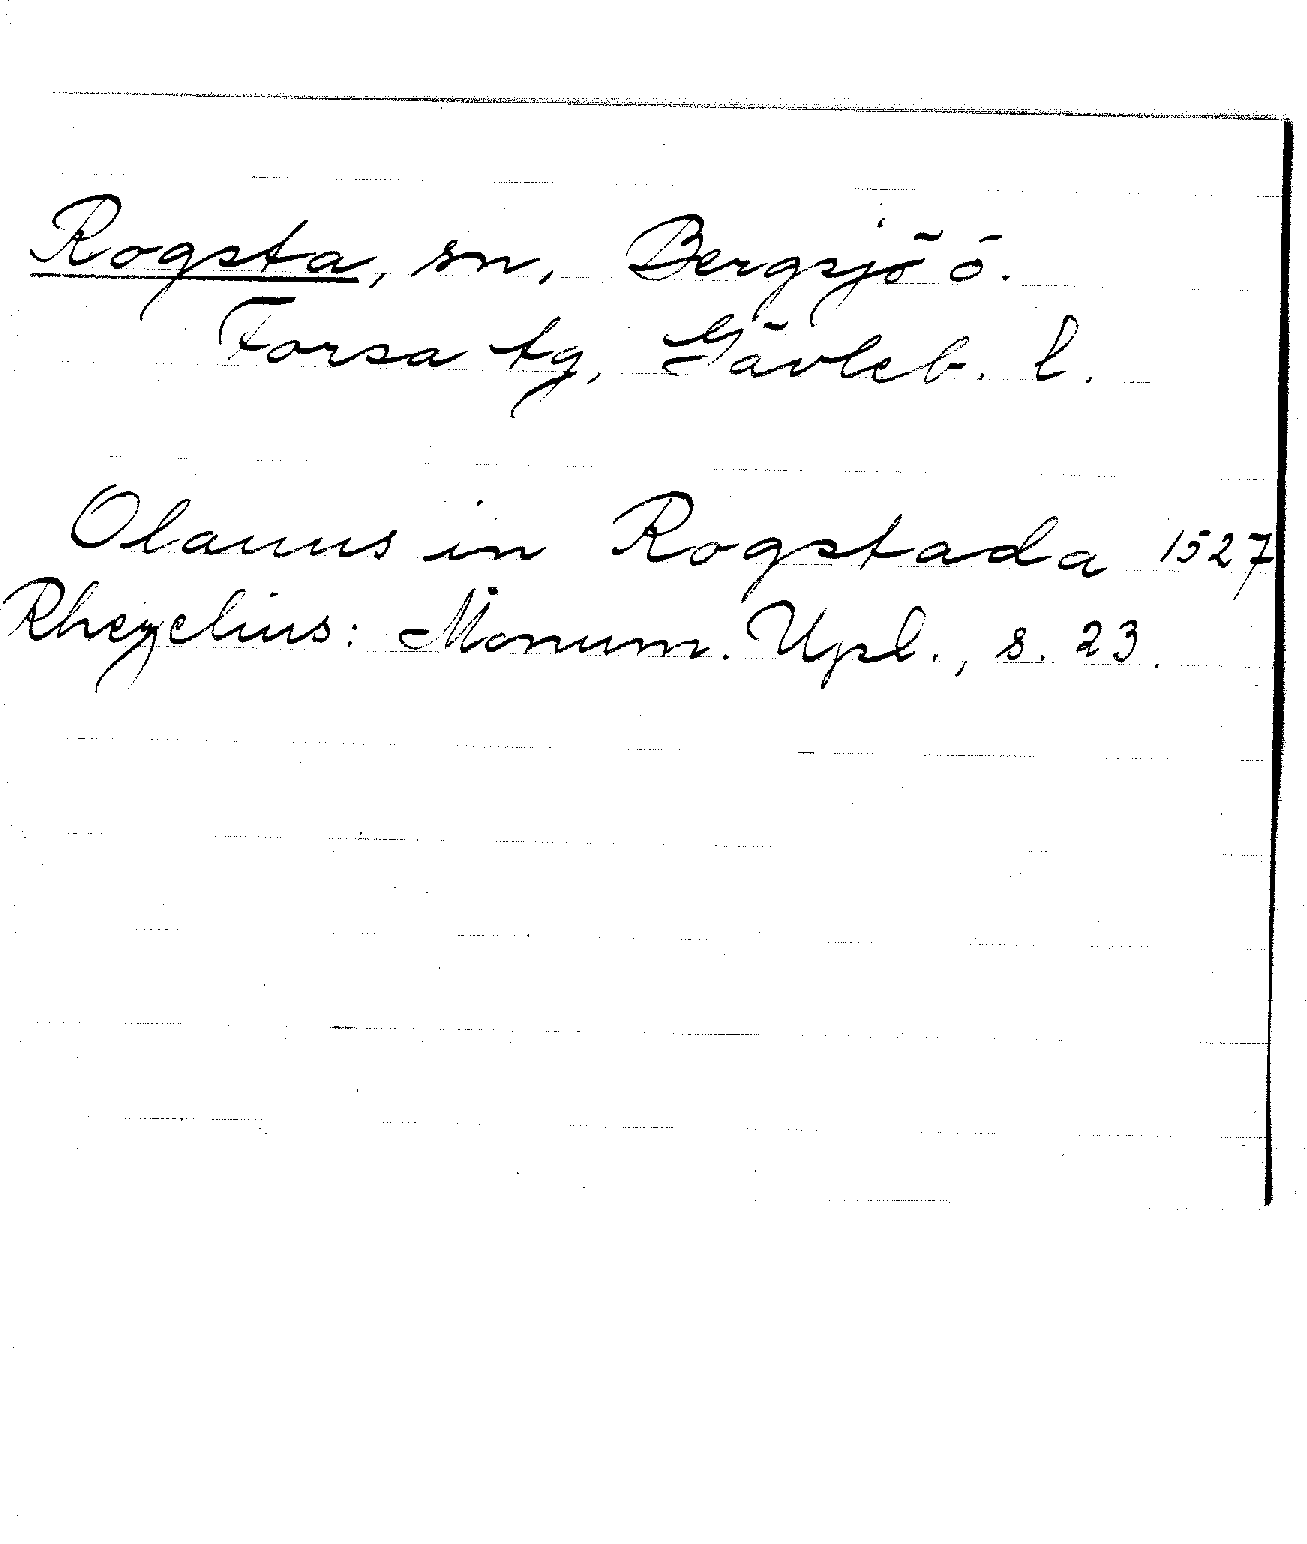 Rogsta, sn, Bergsjö ö.
Forsa tg, Gävleb. l.
Olauus in Rogstada 1527
Rhezelius: Monum. Upl., s. 23.